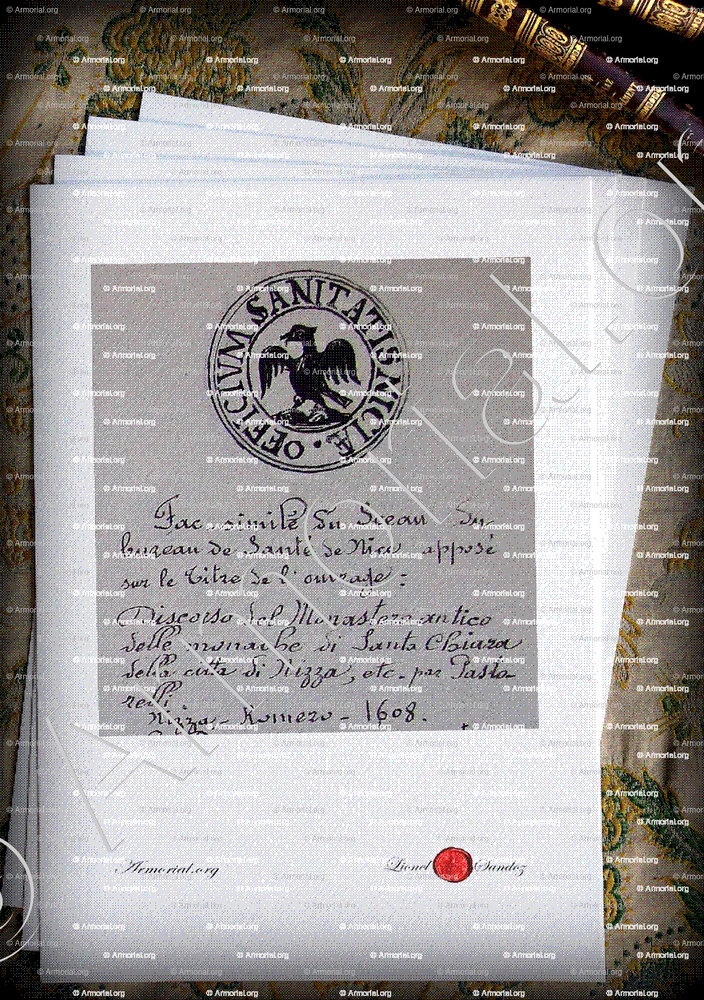 OFFICIVM SANITATIS NICIÆ .
Fac simile du Sceau du
bureau de Santé de Nice apposé
sur le Titre de l'ouvrage :
Discorso del Monastero antico
delle monache di Santa Chiara
della cita di Nizza, etc. par Pasto-
relli.
Nizza - Romero - 1608.
Armorial.org
Lionel Sandoz
© Armorial.org